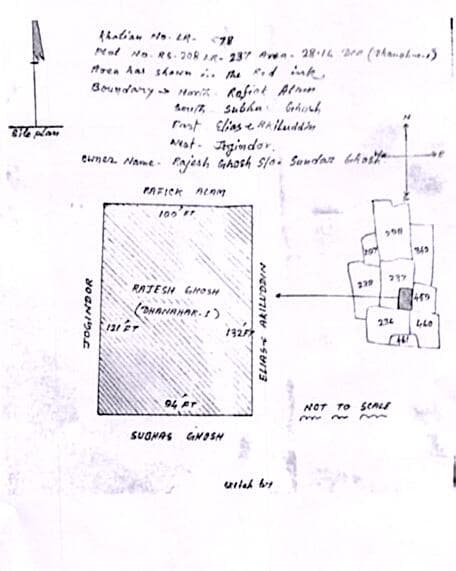 Khatian No. LR- 98
Plot No. RS-208 LR-237 Area- 28.14 Dec (Dhanahar-1)
Area has shown in the Red ink,
Boundary → North- Rafick Alam
South- Subhas Ghosh
East Elias & Akiluddin
West- Jogindor.
Owner Name- Rajesh Ghosh S/o- Sundar Ghosh
Site plan
N
E
RAFICK ALAM
100 FT
JOGINDOR
RAJESH GHOSH
(DHANAHAR-1)
121 FT
132 FT
ELIAS & AKILUDDIN
94 FT
SUBHAS GHOSH
237
459
236
460
461
NOT TO SCALE